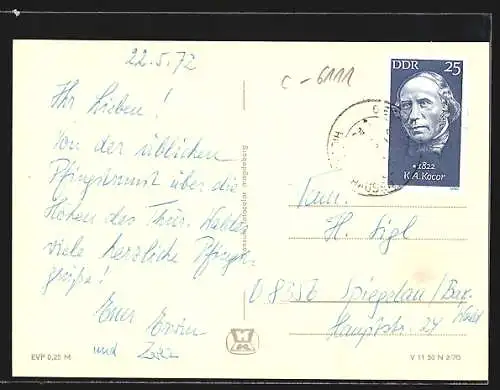 22.5.72
c-6111
DDR 25
* 1822
K.A.Kocor
Ihr Lieben!
Von der üblichen
Pfingsttour über die
Höhen des Thür. Waldes
viele herzliche Pfingst-
grüße!
Euer Erwin
und
Fam.
H. Sigl
D 8356 Spiegelau/Bay.
Wald
Hauptstr. 24
EVP 0,25 M
V 11 50 N 2/70